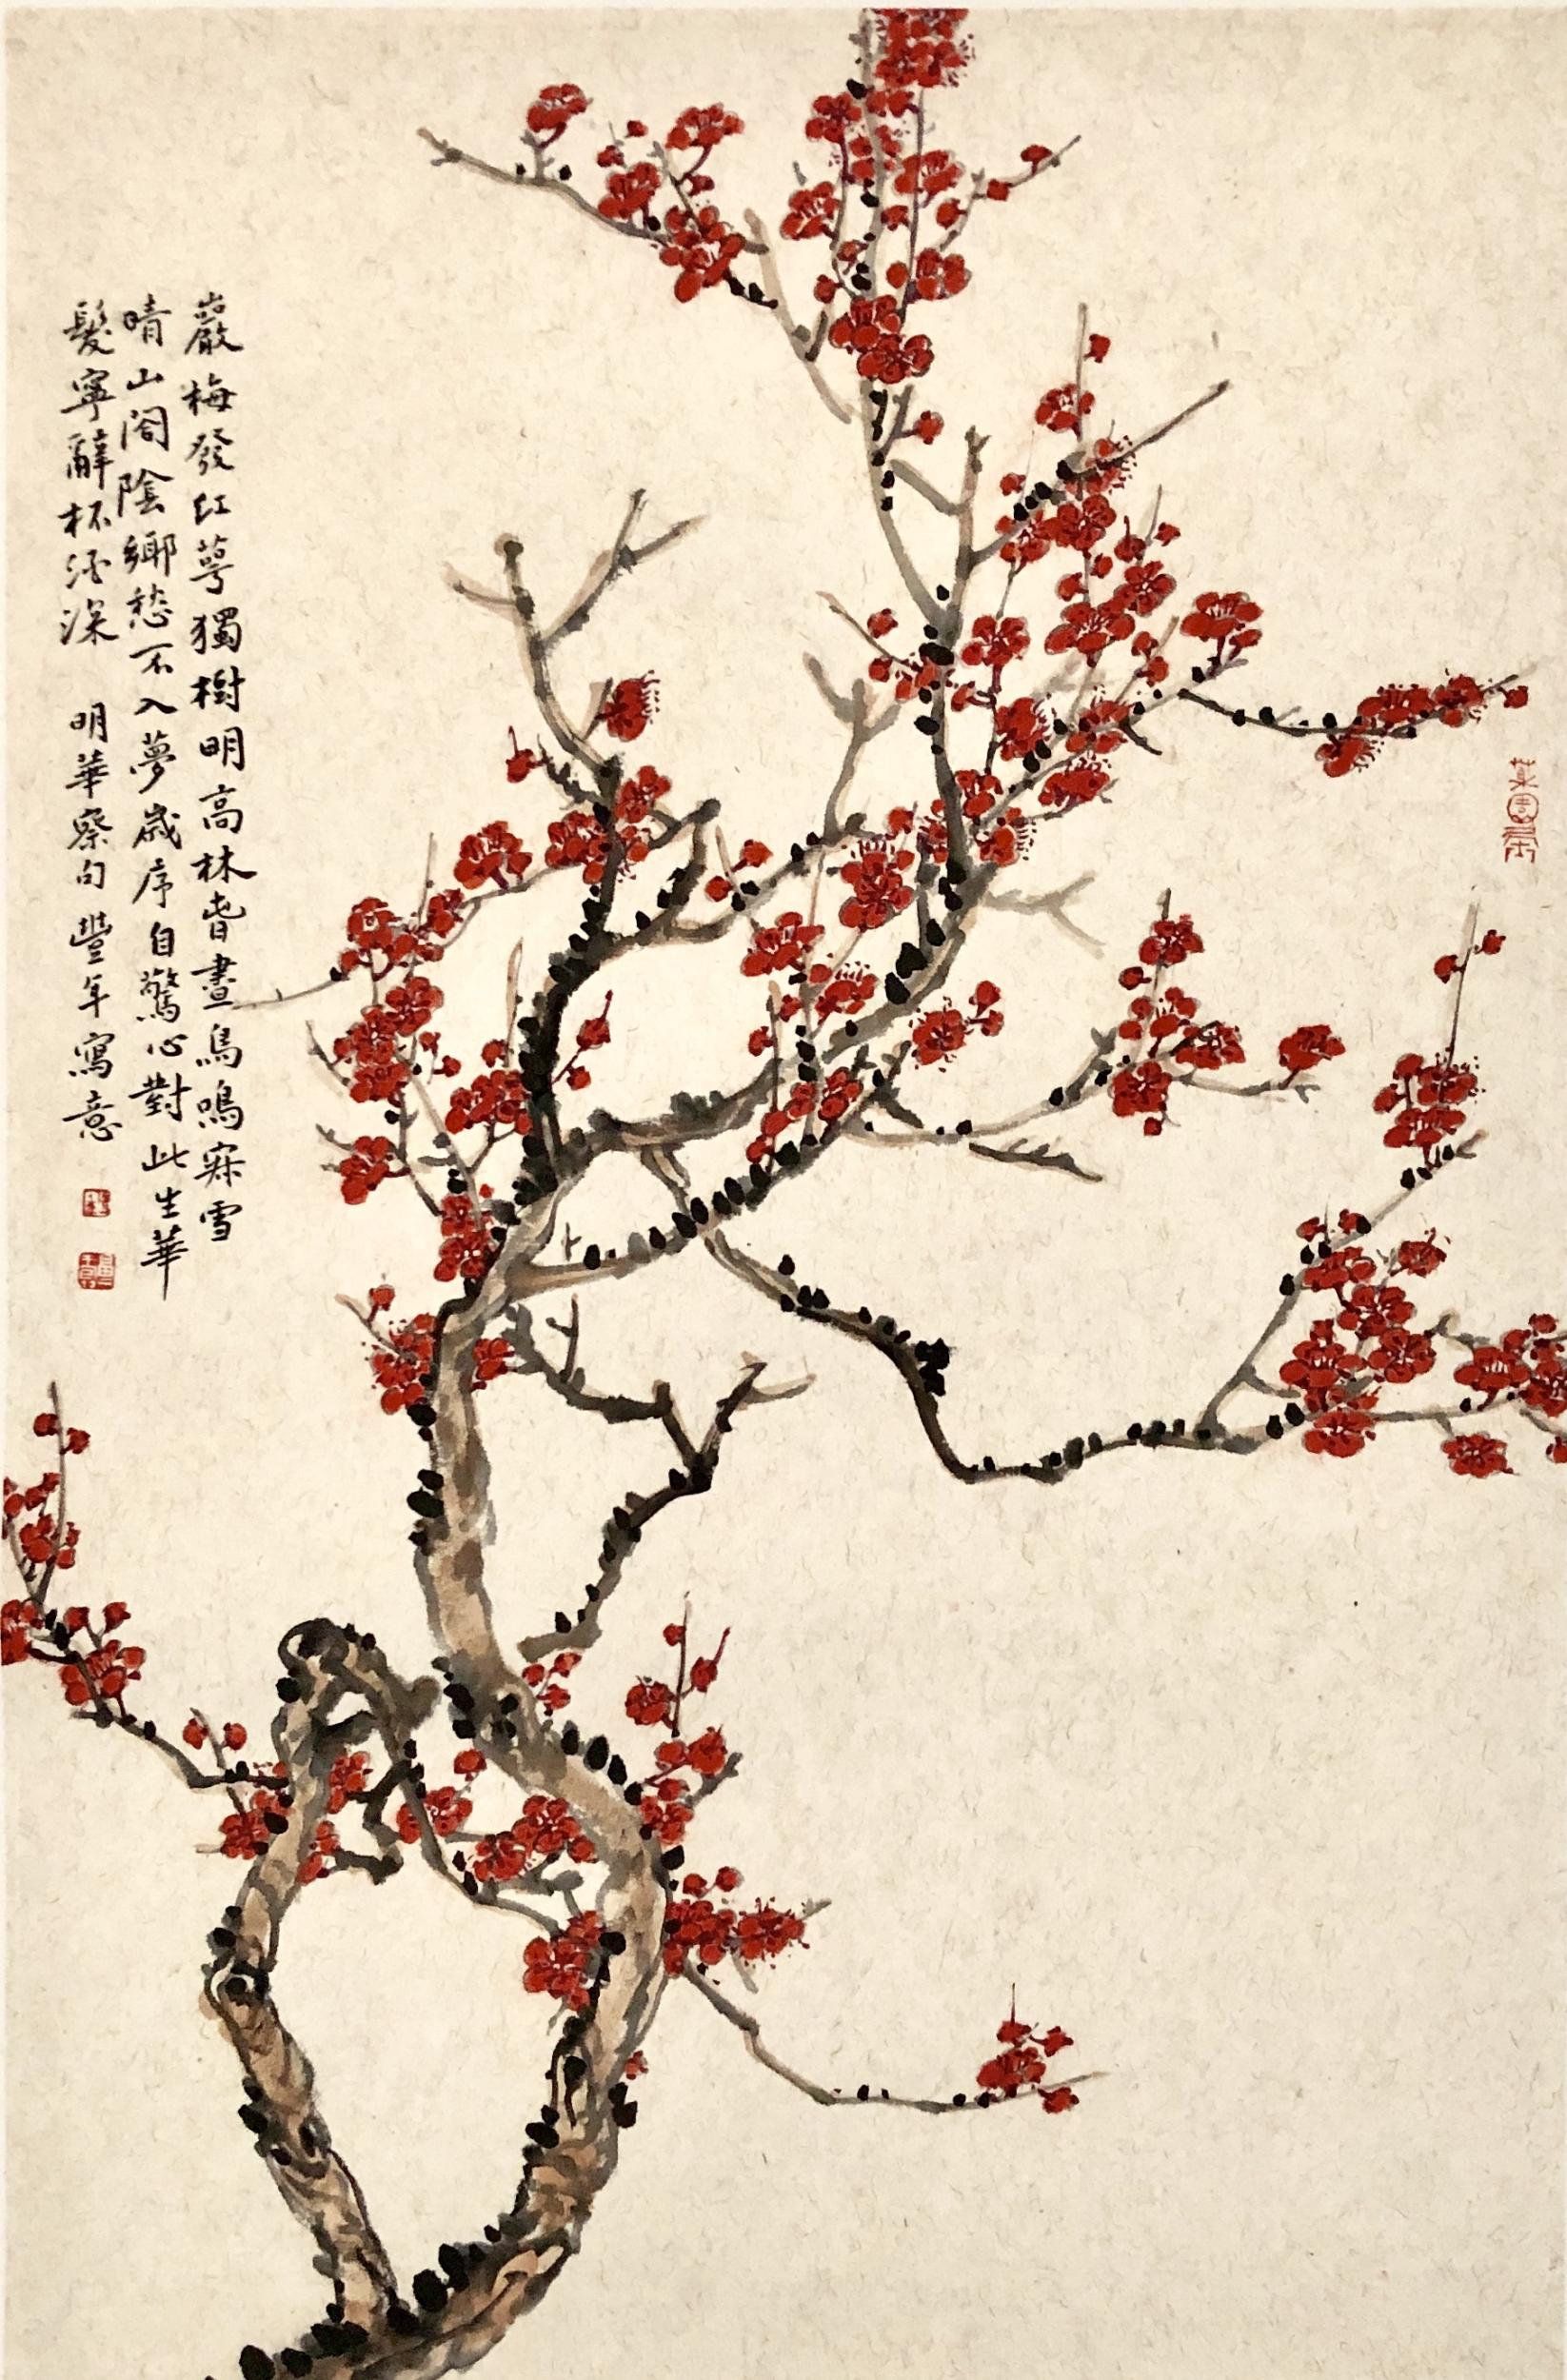 巖梅發红萼獨樹明高林旾晝鳥鳴寂雪
晴山閣陰鄉愁不入夢歲序自驚心對此生華
髮寧辭杯酒深 明華察句 豐年寫意